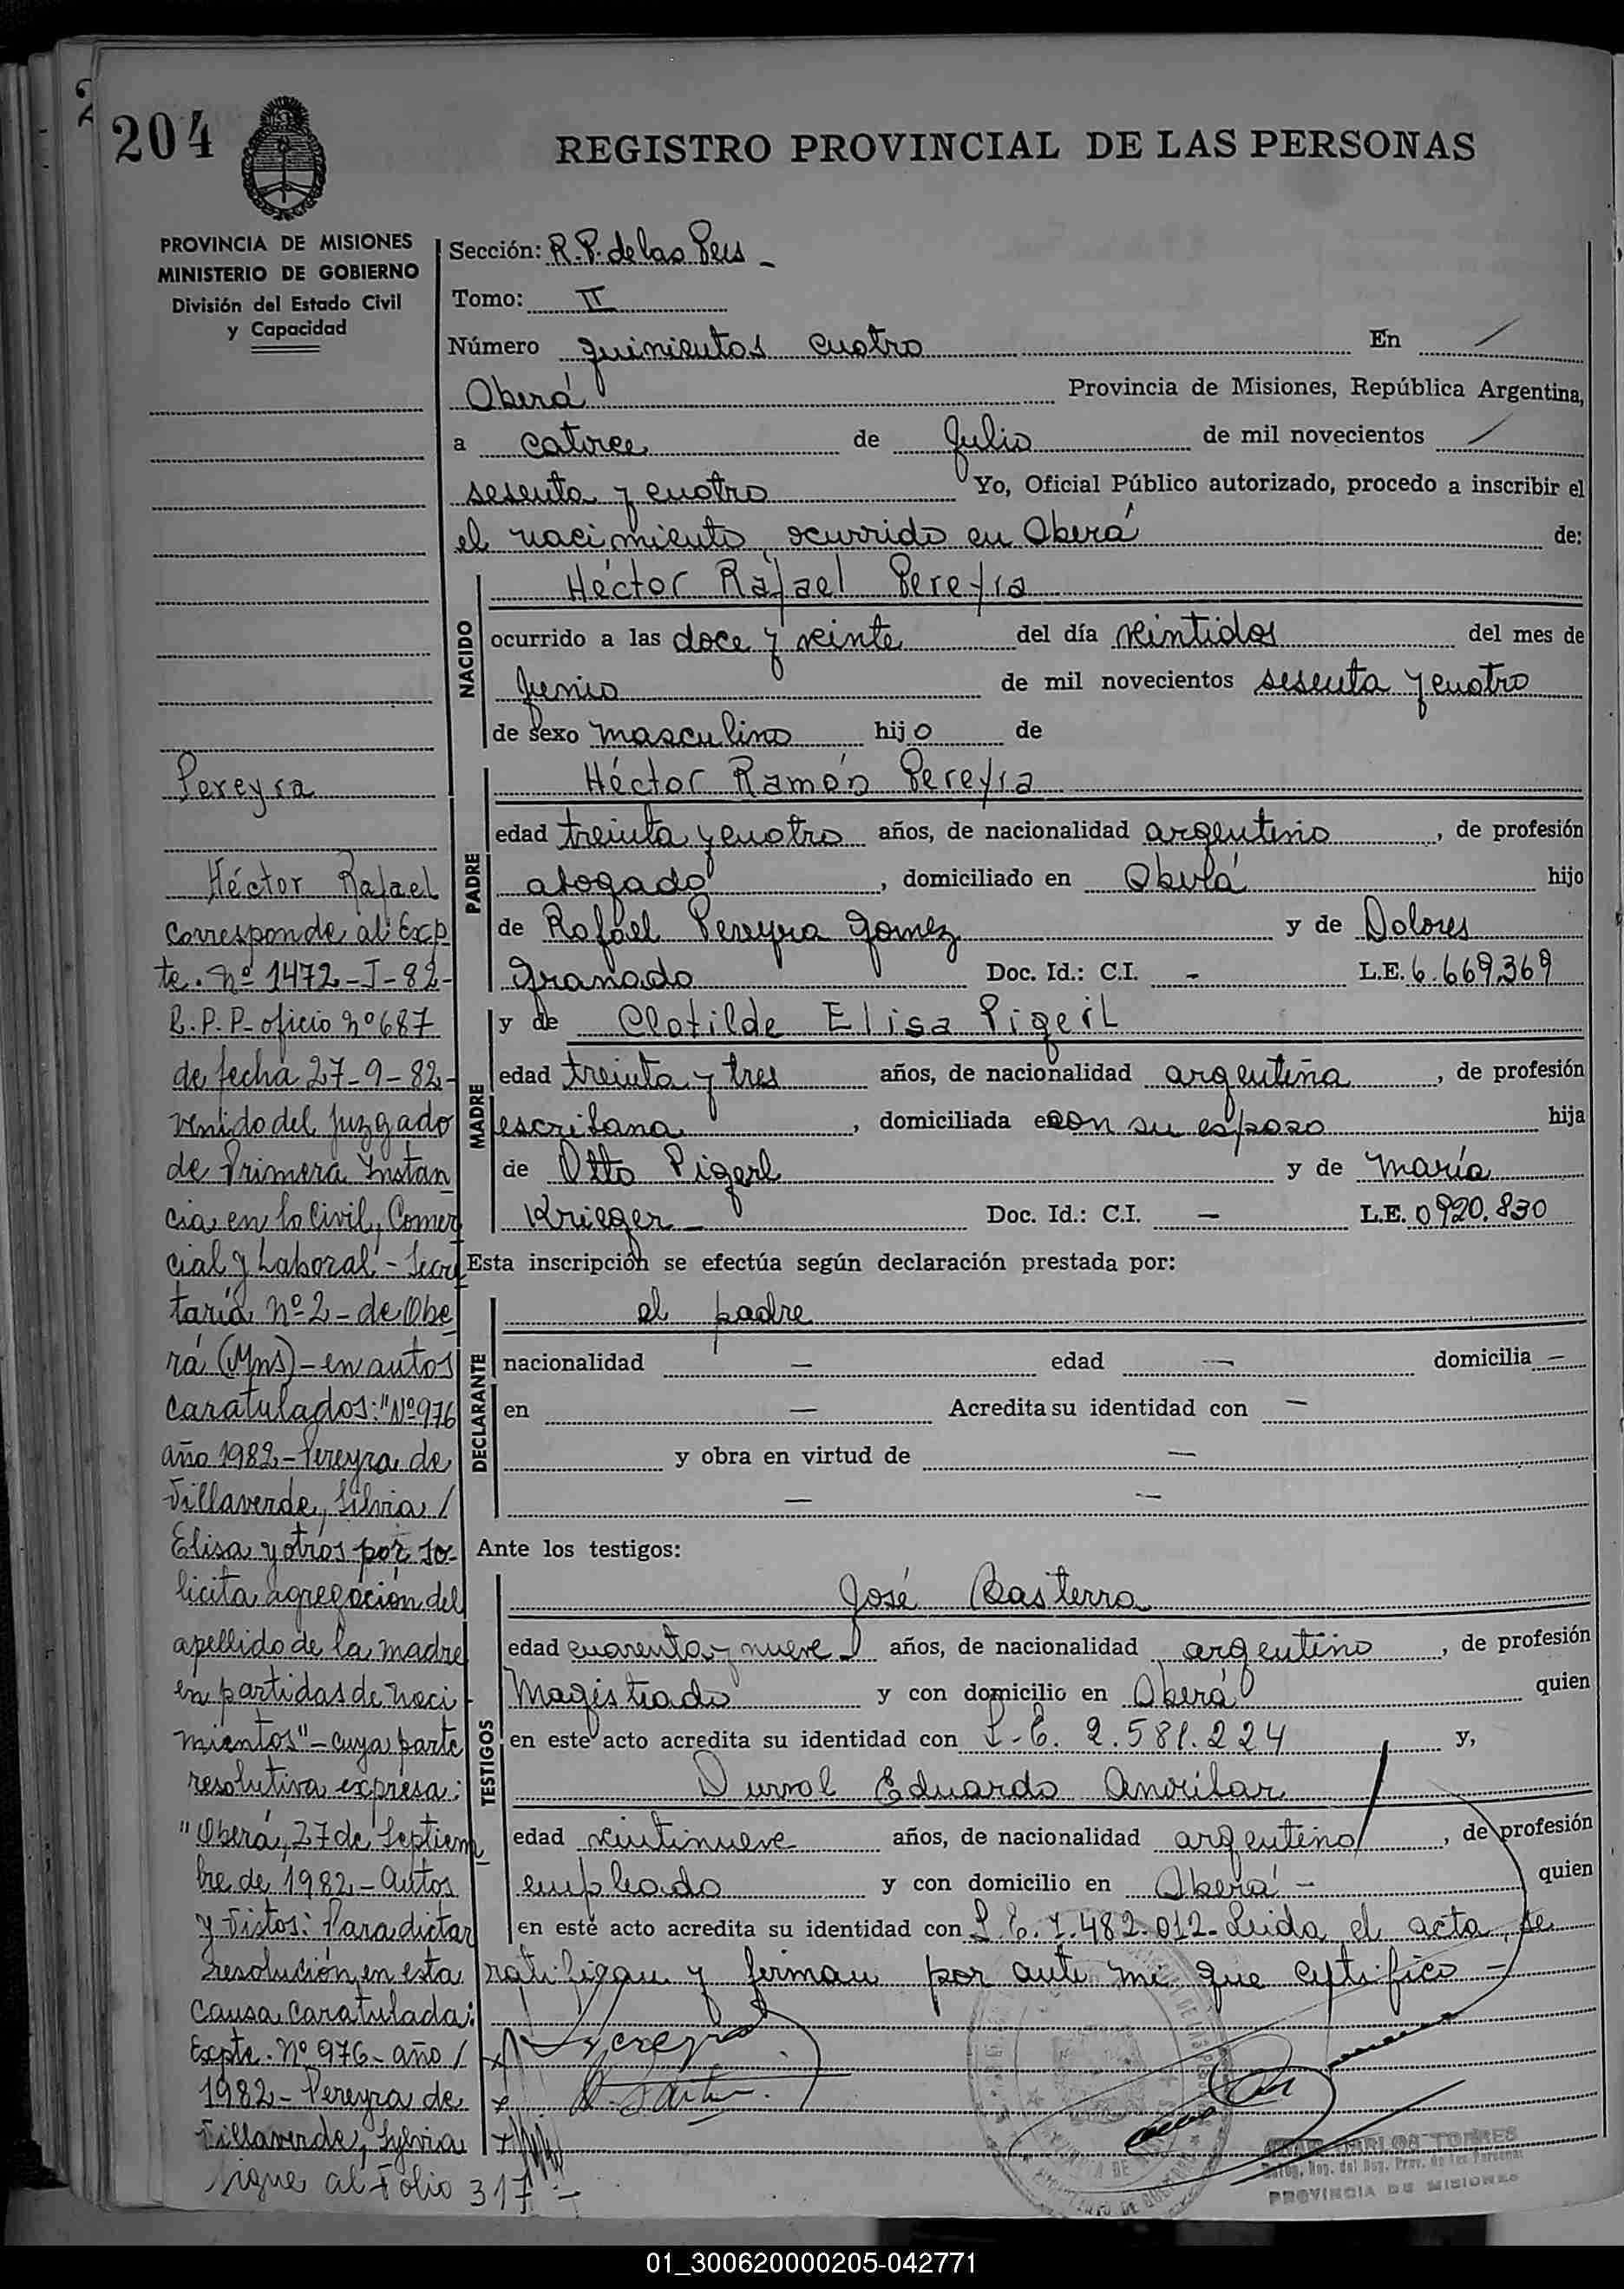 204
REGISTRO PROVINCIAL DE LAS PERSONAS
PROVINCIA DE MISIONES
MINISTERIO DE GOBIERNO
División del Estado Civil
y Capacidad
Pereyra
Héctor Rafael
Corresponde al Exp
te. Nº 1472-I-82-
R.P.P- oficio Nº 687
de fecha 27-9-82-
venido del Juzgado
de Primera Instan
cia en lo Civil, Comer
cial y Laboral - Secre
taría Nº 2 - de Obe
rá (Mns) - en autos
caratulados: "Nº 976
año 1982 - Pereyra de
Villaverde, Silvia /
Elisa y otros por so-
licita agregación del
apellido de la madre
en partidas de naci
mientos" - cuya parte
resolutiva expresa:
"Oberá, 27 de Septiem
bre de 1982 - Autos
y Vistos: Para dictar
resolución en esta
causa caratulada:
Expte. Nº 976 - año /
1982 - Pereyra de
Villaverde, Sylvia
Sigue al Folio 317 -
Sección: R.P. de las Pers -
Tomo: II
Número quinientos cuatro En /
Oberá Provincia de Misiones, República Argentina,
a catorce de Julio de mil novecientos /
sesenta y cuatro Yo, Oficial Público autorizado, procedo a inscribir el
el nacimiento ocurrido en Oberá de:
NACIDO
Héctor Rafael Pereyra
ocurrido a las doce y veinte del día veintidos del mes de
Junio de mil novecientos sesenta y cuatro
de sexo masculino hijo de
PADRE
Héctor Ramón Pereyra
edad treinta y cuatro años, de nacionalidad argentino, de profesión
abogado, domiciliado en Oberá hijo
de Rafael Pereyra Gomez y de Dolores
Granado Doc. Id.: C.I. - L.E. 6.669.369
MADRE
y de Clotilde Elisa Pigerl
edad treinta y tres años, de nacionalidad argentina, de profesión
escribana, domiciliada e con su esposo hija
de Otto Pigerl y de María
Krieger - Doc. Id.: C.I. - L.E. 0920.830
Esta inscripción se efectúa según declaración prestada por:
DECLARANTE
el padre
nacionalidad - edad - domicilia -
en - Acredita su identidad con -
y obra en virtud de -
- -
Ante los testigos:
TESTIGOS
José Basterra
edad cuarenta y nueve años, de nacionalidad argentino, de profesión
Magistrado y con domicilio en Oberá quien
en este acto acredita su identidad con L.E. 2.581.224 y,
Durval Eduardo
edad veintinueve años, de nacionalidad argentino, de profesión
empleado y con domicilio en Oberá - quien
en este acto acredita su identidad con L.E. 7.482.012- Leida el acta, se
ratifican y firman por ante mi que certifico -
CARLOS TORRES
PROVINCIA DE MISIONES
01_300620000205-042771